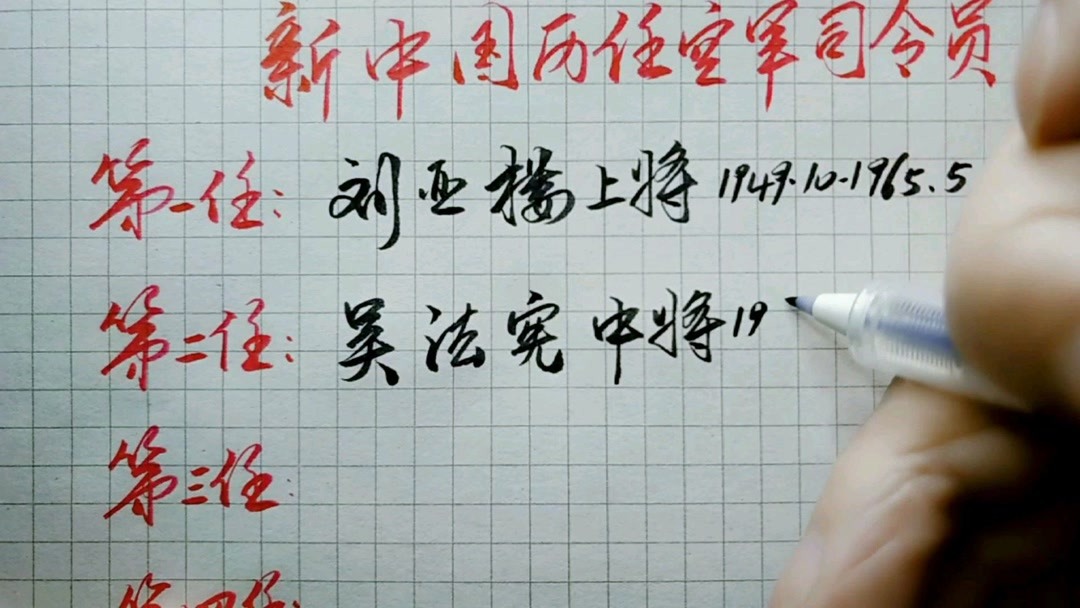 新中国历任空军司令员
第一任：刘亚楼上将1949.10-1965.5
第二任：吴法宪中将19
第三任：
第四任：